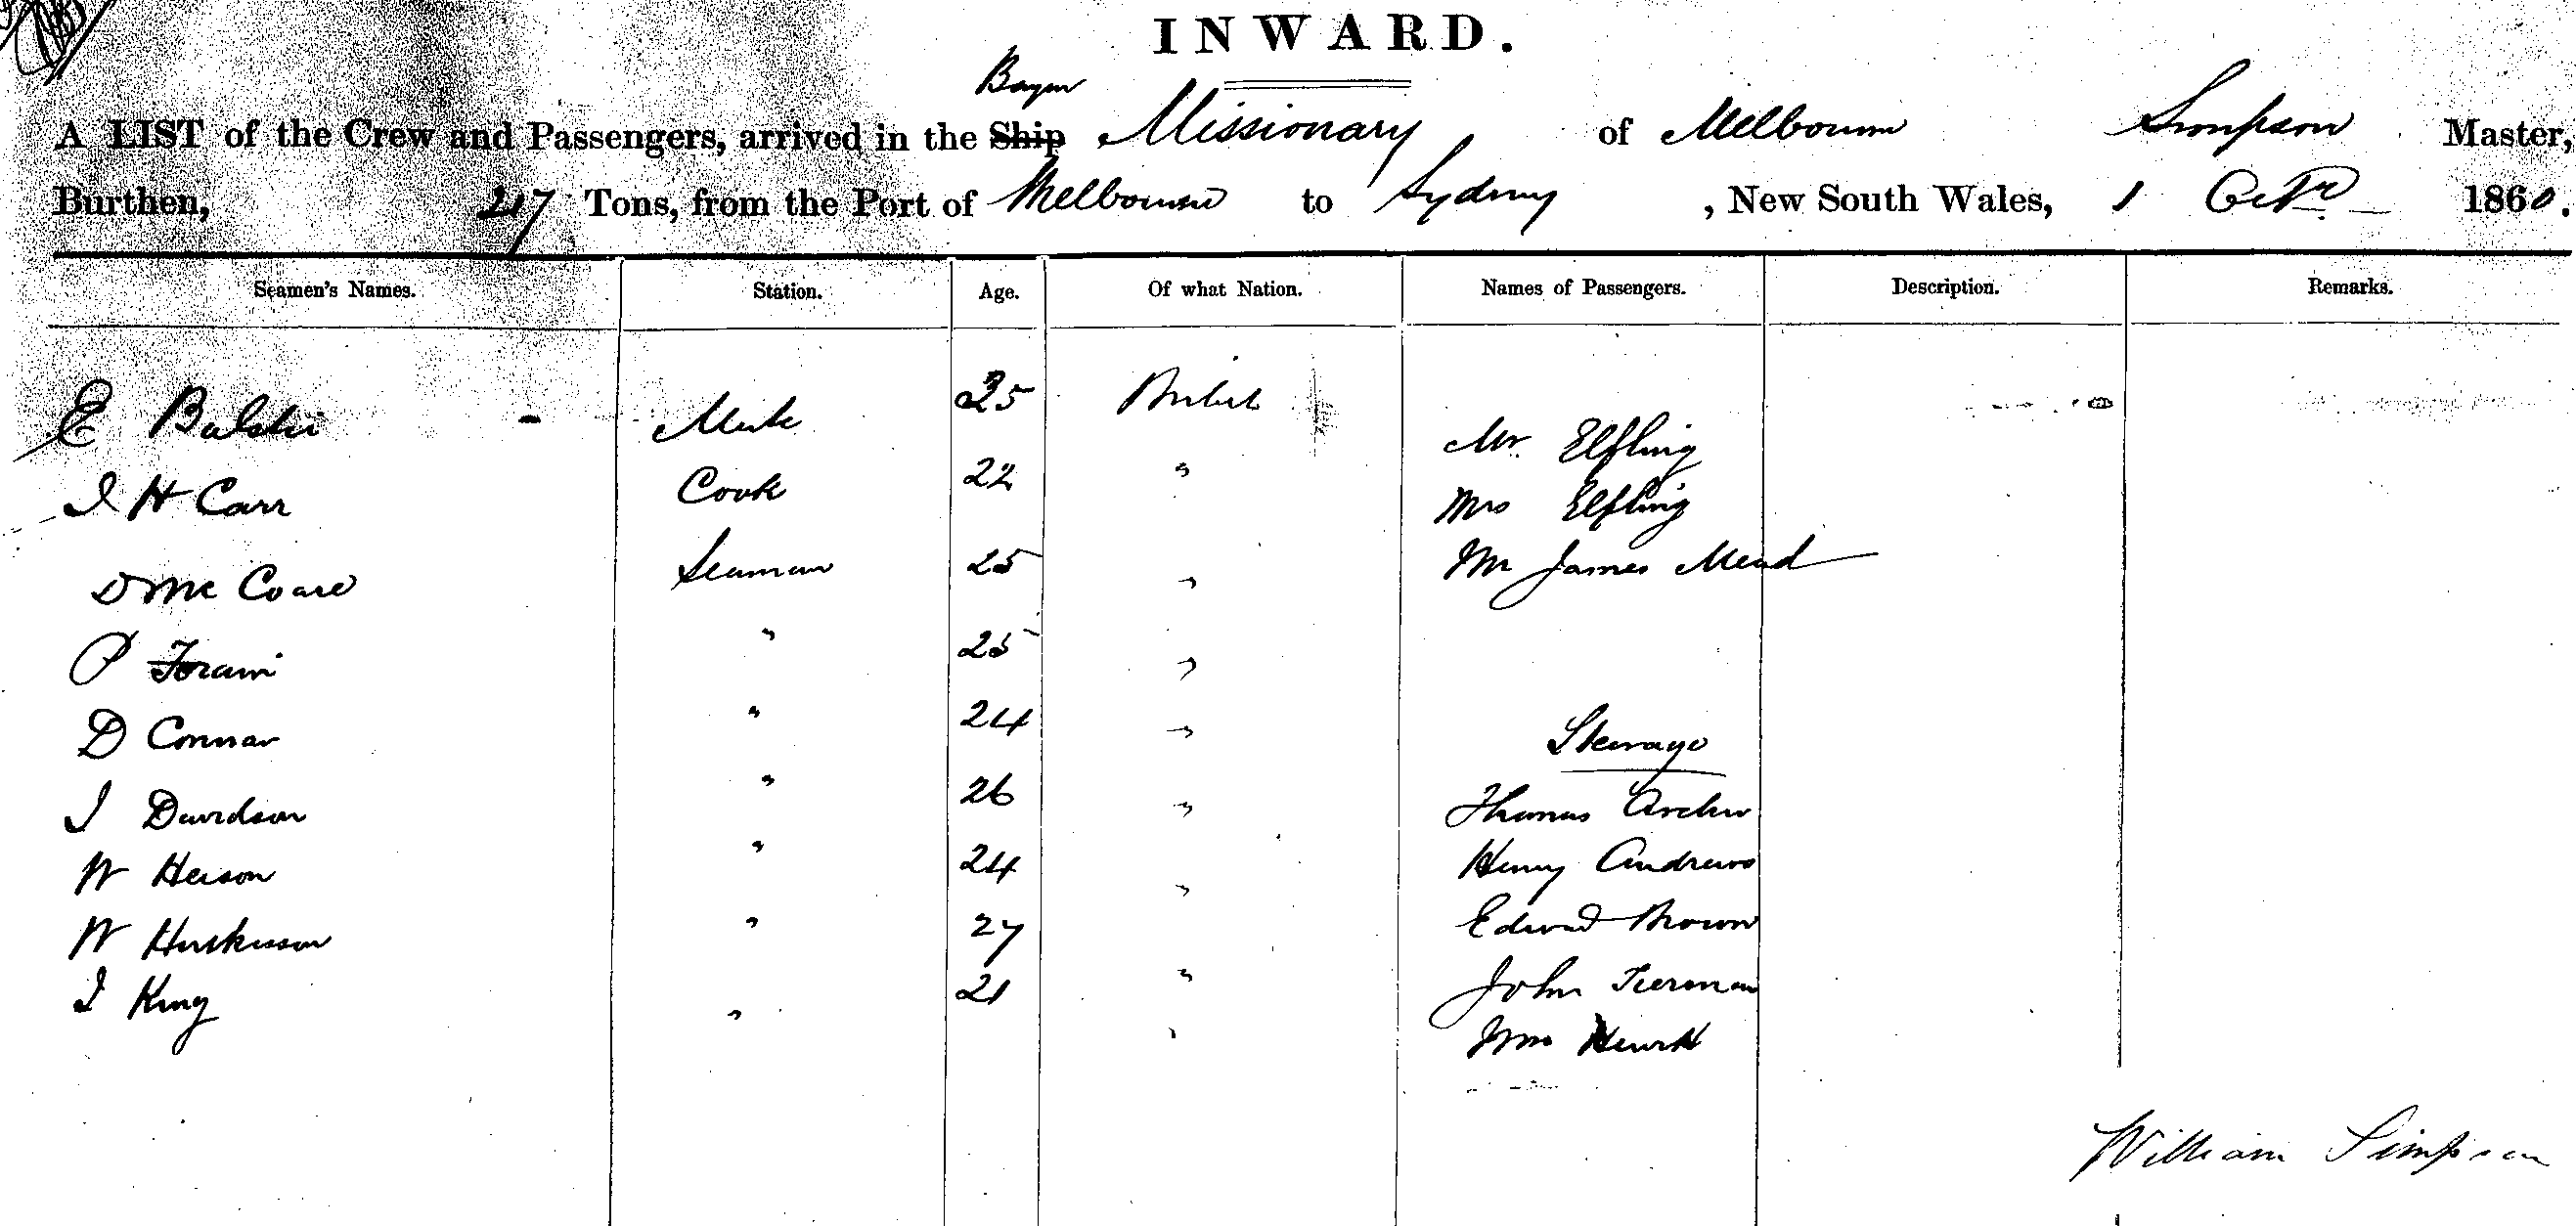 INWARD.
A LIST of the Crew and Passengers, arrived in the Ship Missionary of Melbourne Simpson Master,
Burthen, Tons, from the Port of Melbourne to Sydney, New South Wales, 1 Octr 1860.
Seamen's Names. Station. Age. Of what Nation. Names of Passengers. Description. Remarks.
E Mate 35 British
Mr. Elfling
J H Carr Cook 22 "
Mrs Elfling
D Mc Seaman 25 "
Mr James Mead
P " 25 "
D Connar " 24 "
Steerage
J Davidson " 26 "
Thomas Archer
W " 24 "
Henry Andrews
W Huskisson " 27
Edward Brown
J King " 21 "
John Tiernan
Wm
William Simpson